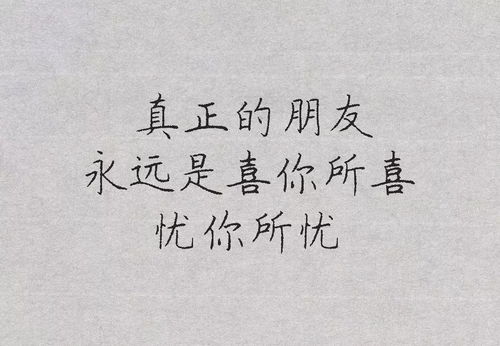 真正的朋友
永远是喜你所喜
忧你所忧